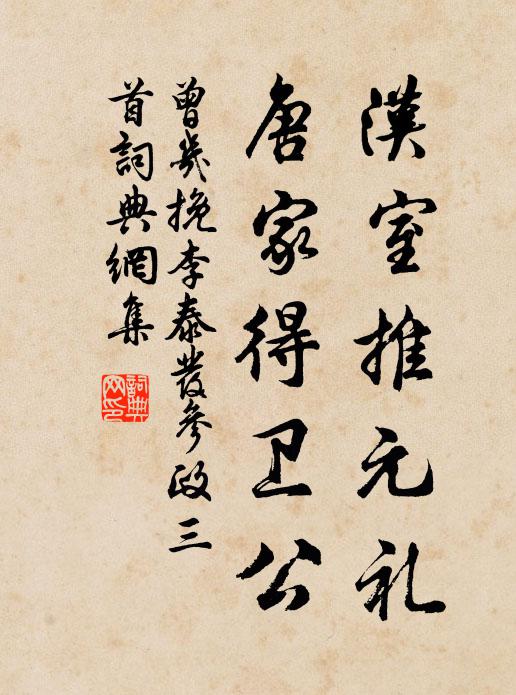 漢室推元礼
唐家得卫公
曾幾挽李泰發參政三
首詞典網集
詞典
网印